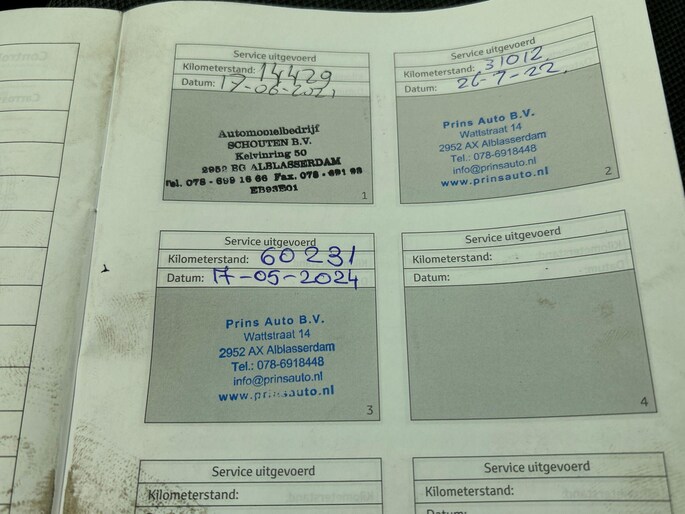 Service uitgevoerd
Kilometerstand: 14429
Datum: 17-06-2021
Automobielbedrijf
SCHOUTEN B.V.
Kelvinring 50
2952 BG ALBLASSERDAM
Tel. 078 - 699 16 66 Fax. 078 - 691 98
EB93B01
1
Service uitgevoerd
Kilometerstand: 31012
Datum: 26-7-22
Prins Auto B.V.
Wattstraat 14
2952 AX Alblasserdam
Tel.: 078-6918448
info@prinsauto.nl
www.prinsauto.nl
2
Service uitgevoerd
Kilometerstand: 60231
Datum: 17-05-2024
Prins Auto B.V.
Wattstraat 14
2952 AX Alblasserdam
Tel.: 078-6918448
info@prinsauto.nl
www.prinsauto.nl
3
Service uitgevoerd
Kilometerstand:
Datum:
4
Service uitgevoerd
Kilometerstand:
Service uitgevoerd
Kilometerstand: